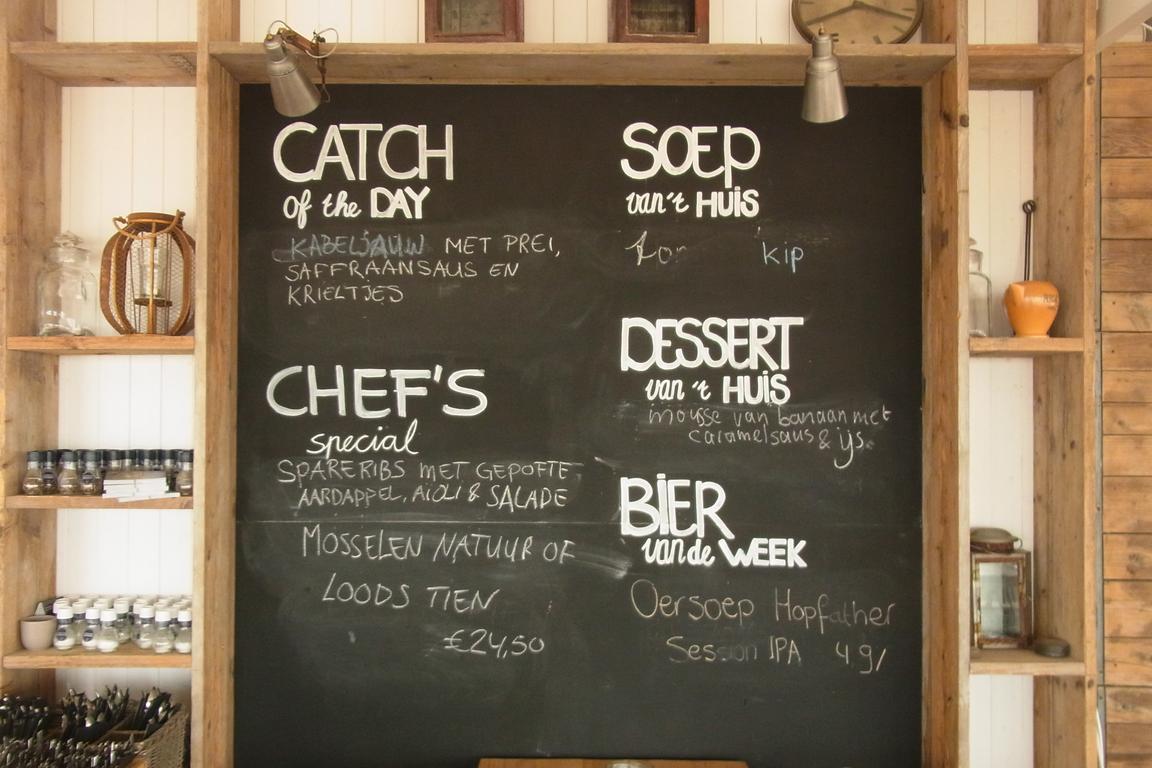 CATCH
of the DAY
KABELJAUW MET PREI,
SAFFRAANSAUS EN
KRIELTJES
CHEF'S
special
SPARERIBS MET GEPOFTE
AARDAPPEL, AIOLI & SALADE
MOSSELEN NATUUR OF
LOODS TIEN
€24,50
SOEP
van 't HUIS
kip
DESSERT
van 't HUIS
mousse van banaan met
caramelsaus & ijs.
BiER
van de WEEK
Oersoep Hopfather
Session IPA